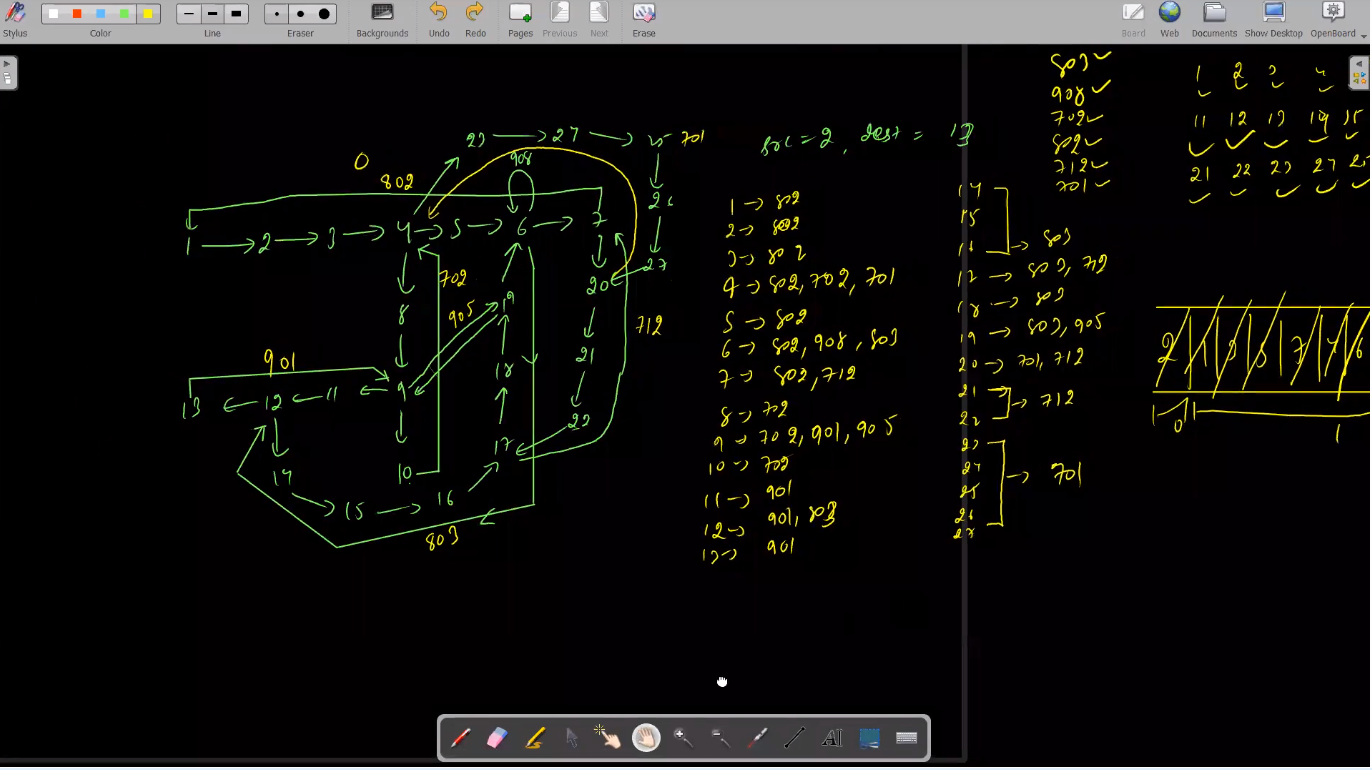 Stylus
Color
Line
Eraser
Backgrounds
Undo
Redo
Pages
Previous
Next
Erase
Board
Web
Documents
Show Desktop
OpenBoard
23 27 25 701
0
802
908
26
27
1 2 3 4 5 6 7
702
905
19
20
8
712
901
18
21
13 12 11 9
22
17
14 10
15 16
803
src = 2, dest = 13
1 → 802
2 → 802
3 → 802
4 → 802, 702, 701
5 → 802
6 → 802, 908, 803
7 → 802, 712
8 → 702
9 → 702, 901, 905
10 → 702
11 → 901
12 → 901, 803
13 → 901
14
15
16 → 803
17 → 803, 712
18 → 803
19 → 803, 905
20 → 701, 712
21
22 → 712
23
24
25 → 701
26
27
803 ✓
908 ✓
702 ✓
802 ✓
712 ✓
701 ✓
1 2 3 4
11 12 13 14 15
21 22 23 24 25
2 1 3 5 7 4 6
0 1
AI